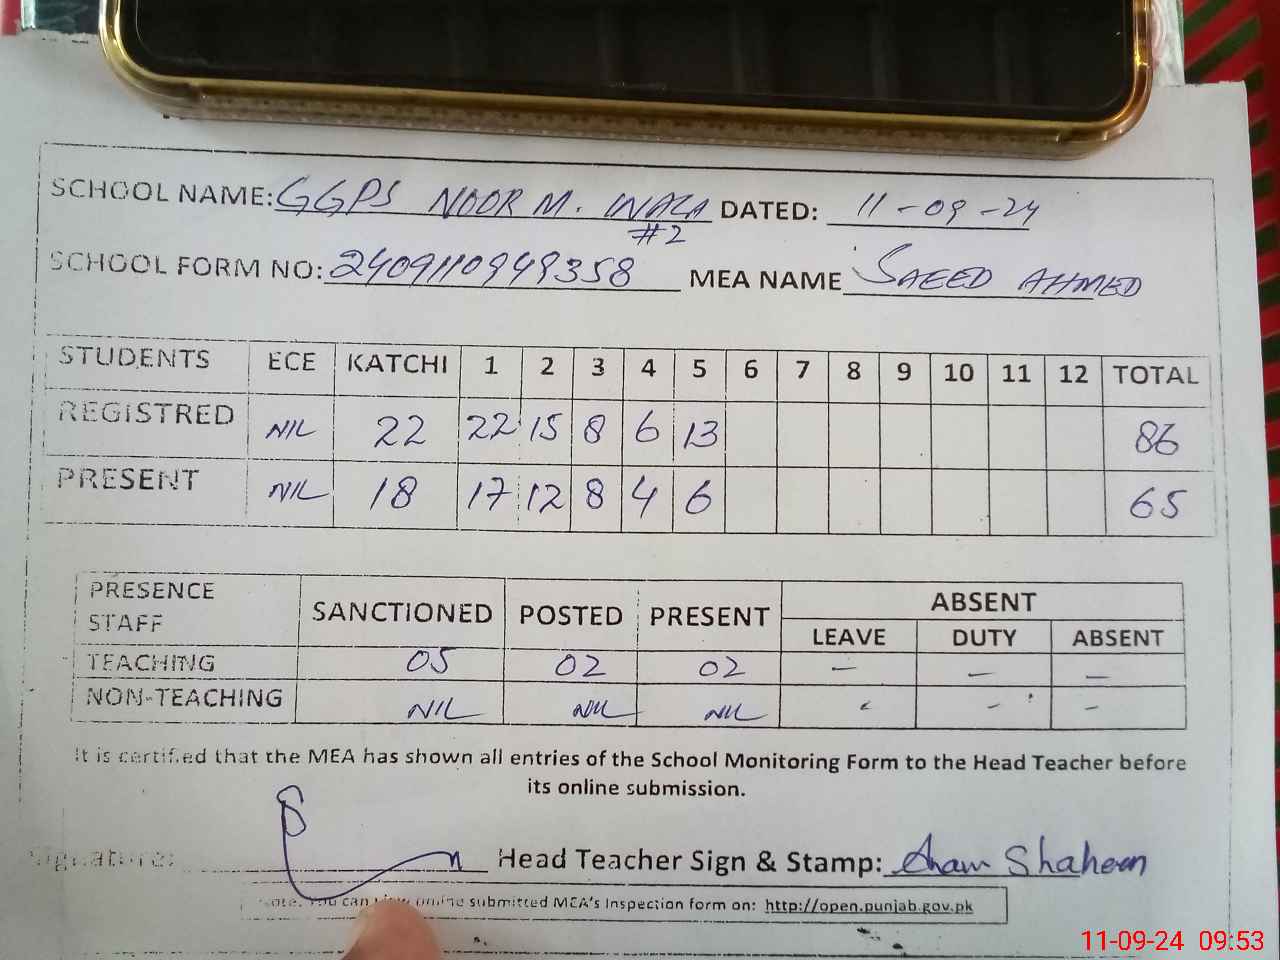 SCHOOL NAME: GGPS NOOR M. WALA #2 DATED: 11-09-24
SCHOOL FORM NO: 2409110949358 MEA NAME SAEED AHMED
STUDENTS ECE KATCHI 1 2 3 4 5 6 7 8 9 10 11 12 TOTAL
REGISTRED NIL 22 22 15 8 6 13 86
PRESENT NIL 18 17 12 8 4 6 65
PRESENCE STAFF SANCTIONED POSTED PRESENT ABSENT
LEAVE DUTY ABSENT
TEACHING 05 02 02 – – –
NON-TEACHING NIL NIL NIL – – –
It is certified that the MEA has shown all entries of the School Monitoring Form to the Head Teacher before
its online submission.
Signature: Head Teacher Sign & Stamp: Anam Shaheen
Note: You can view online submitted MEA's Inspection form on: http://open.punjab.gov.pk
11-09-24 09:53